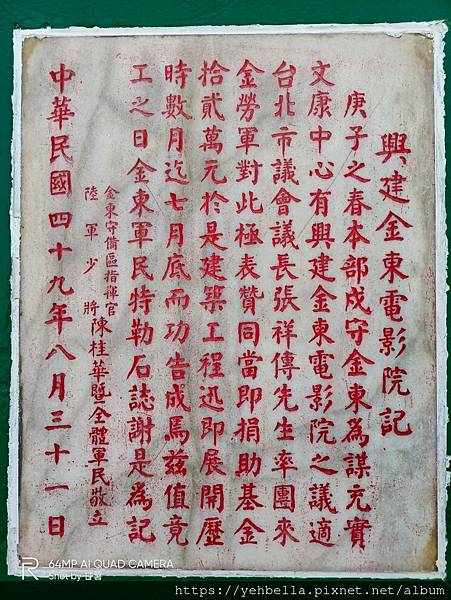 興建金東電影院記
庚子之春本部戍守金東為謀充實
文康中心有興建金東電影院之議適
台北市議會議長張祥傳先生率團來
金勞軍對此極表贊同當即捐助基金
拾貳萬元於是建築工程迅即展開歷
時數月迄七月底而功告成焉兹值竟
工之日金東軍民特勒石誌謝是為記
金東守備區指揮官
陸軍少將陳桂華暨全體軍民敬立
中華民國四十九年八月三十一日
64MP AI QUAD CAMERA
Shot by
https://yehbella.pixnet.net/album